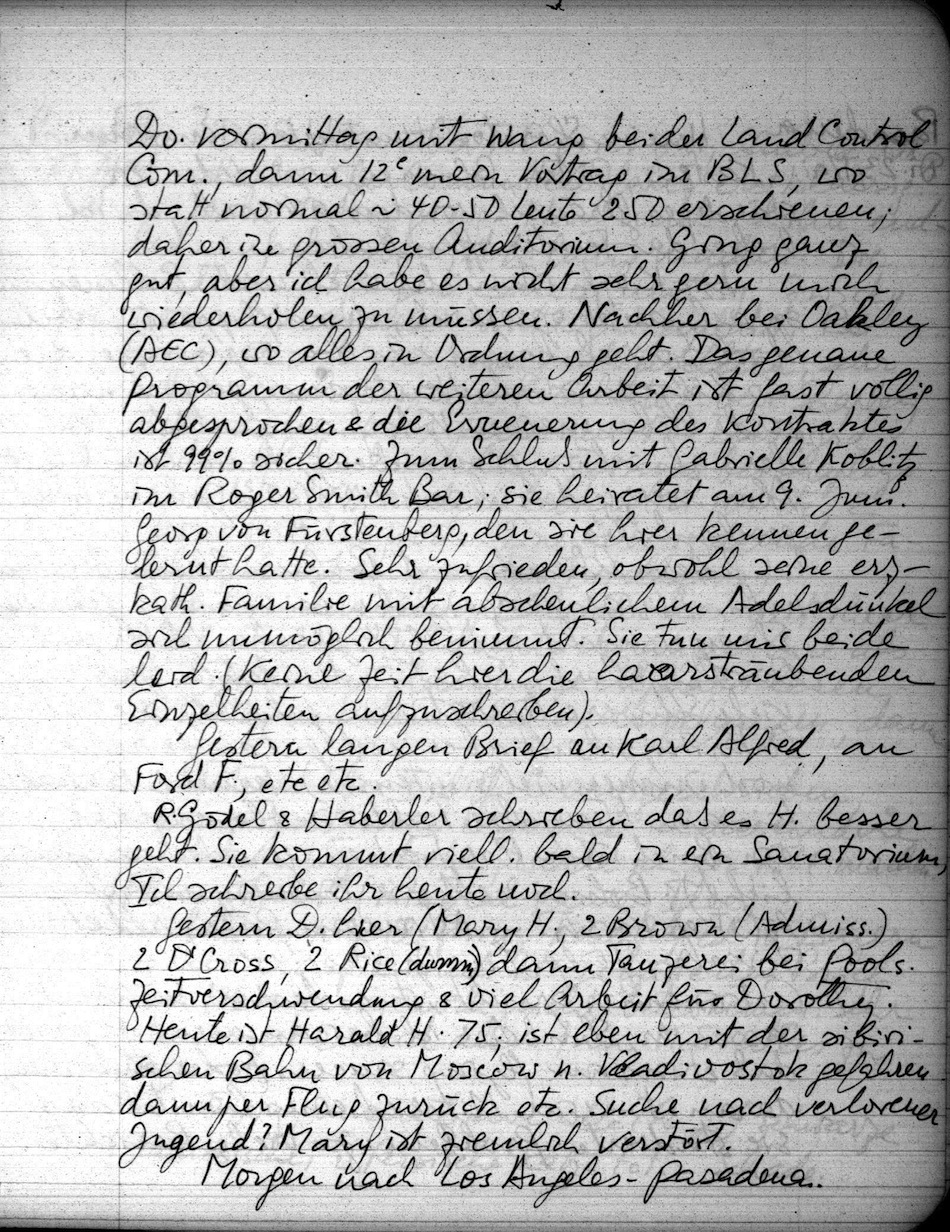 Do. vormittag mit Wang bei der Land Control
Com., dann 12ᵉ mein Vortrag im BLS, wo
statt normal ~ 40-50 Leute 250 erschienen;
daher im grossen Auditorium. Ging ganz
gut, aber ich habe es nicht sehr gern mich
wiederholen zu müssen. Nachher bei Oakley
(AEC), wo alles in Ordnung geht. Das genaue
Programm der weiteren Arbeit ist fast völlig
abgesprochen & die Erneuerung des Kontraktes
ist 99% sicher. Zum Schluß mit Gabrielle Koblitz
im Roger Smith Bar; sie heiratet am 9. Juni
Georg von Fürstenberg, den sie hier kennen ge-
lernt hatte. Sehr zufrieden, obwohl seine erz-
kath. Familie mit abscheulichem Adelsdünkel
sich unmöglich benimmt. Sie tun mir beide
leid. (Keine Zeit hier die haarsträubenden
Einzelheiten aufzuschreiben).
Gestern langen Brief an Karl Alfred, an
Ford F., etc etc.
R. Gödel & Haberler schreiben daß es H. besser
geht. Sie kommt viell. bald in ein Sanatorium,
Ich schreibe ihr heute noch.
Gestern D. hier (Mary H., 2 Brown (Admiss.)
2 D'Cross, 2 Rice (dumm) dann Tanzerei bei Pools.
Zeitverschwendung & viel Arbeit für Dorothy.
Heute ist Harald H. 75; ist eben mit der sibiri-
schen Bahn von Moscow n. Vladivostok gefahren
dann per Flug zurück etc. Suche nach verlorener
Jugend? Mary ist ziemlich verstört.
Morgen nach Los Angeles - Pasadena.